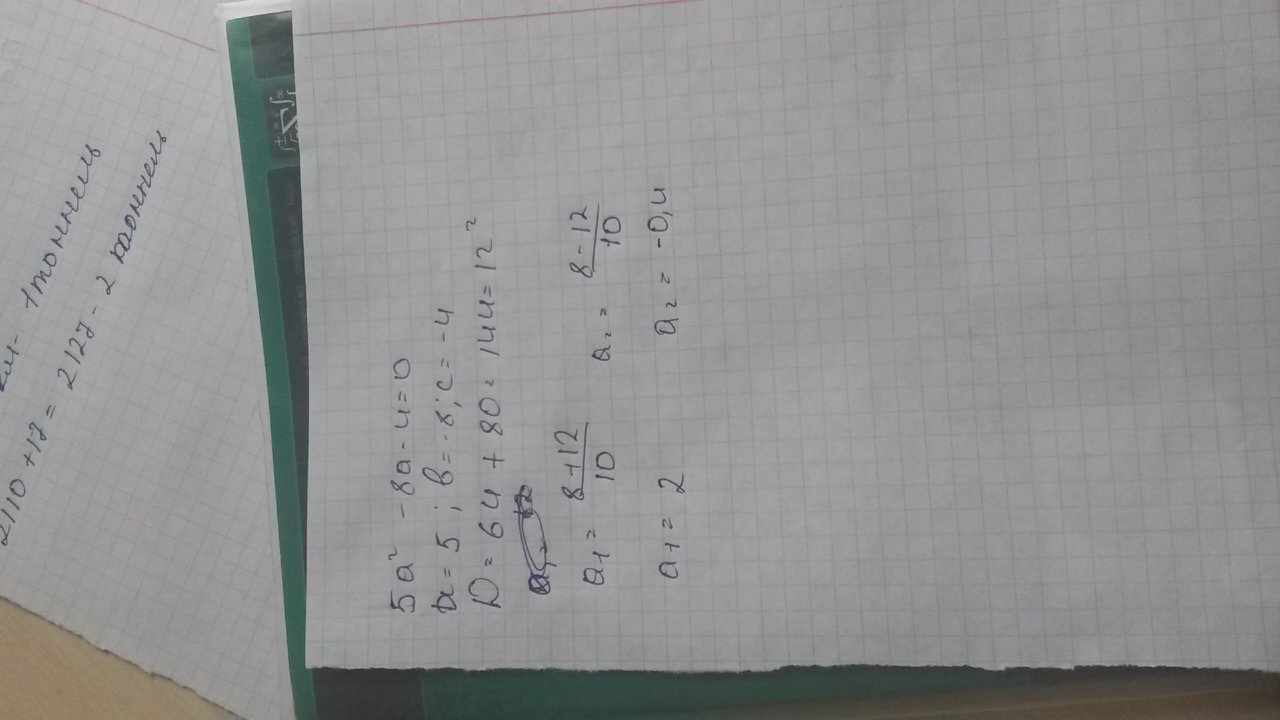 1тоннель
2110 + 17 = 2127 - 2 тоннель
5a² - 8a - 4 = 0
a = 5 ; в = -8 ; c = -4
D = 64 + 80 = 144 = 12²
a₁ = 8+12/10 a₂ = 8-12/10
a₁ = 2 a₂ = -0,4